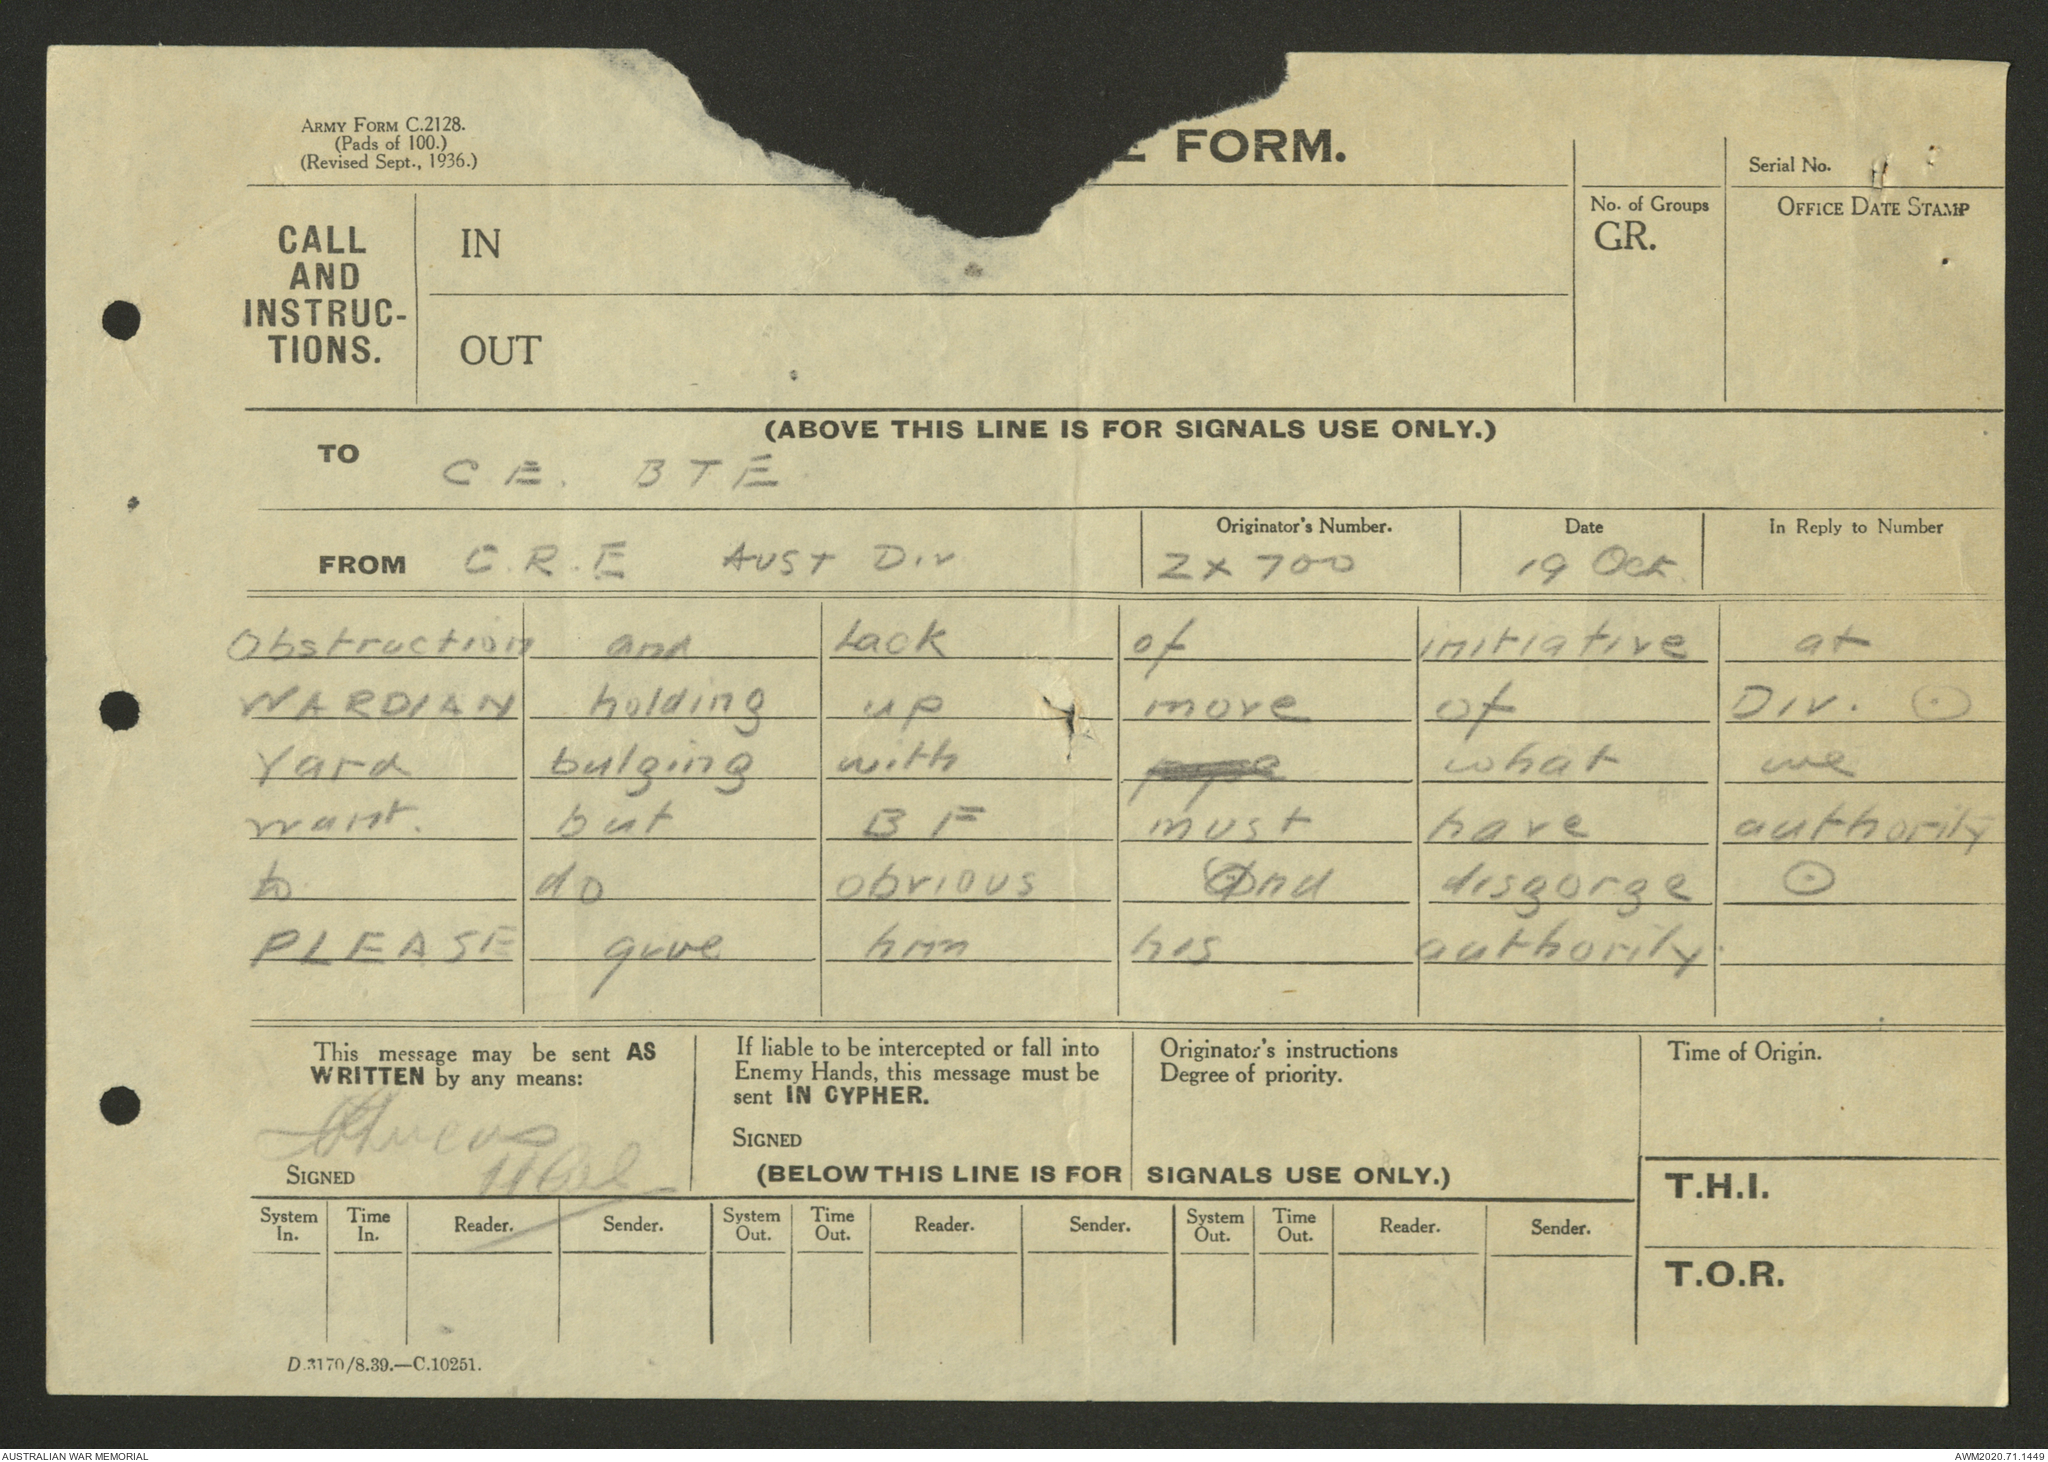 ARMY FORM C.2128.
(Pads of 100.)
(Revised Sept., 1936.)
E FORM.
Serial No.
CALL AND INSTRUC-TIONS.
IN
OUT
No. of Groups
GR.
OFFICE DATE STAMP
(ABOVE THIS LINE IS FOR SIGNALS USE ONLY.)
TO C E. B T E
FROM C.R.E Aust Div Originator's Number. 2x 700 Date 19 Oct. In Reply to Number
Obstruction and lack of initiative at
WARDIAN holding up move of Div. ⊙
Yard bulging with what we
want. but B F must have authority
to do obvious and disgorge ⊙
PLEASE give him his authority.
This message may be sent AS
WRITTEN by any means:
SIGNED
If liable to be intercepted or fall into
Enemy Hands, this message must be
sent IN CYPHER.
SIGNED
Originator's instructions
Degree of priority.
Time of Origin.
(BELOW THIS LINE IS FOR SIGNALS USE ONLY.)
T.H.I.
System In. Time In. Reader. Sender. System Out. Time Out. Reader. Sender. System Out. Time Out. Reader. Sender.
T.O.R.
D.3170/8.39.—C.10251.
AUSTRALIAN WAR MEMORIAL
AWM2020.71.1449